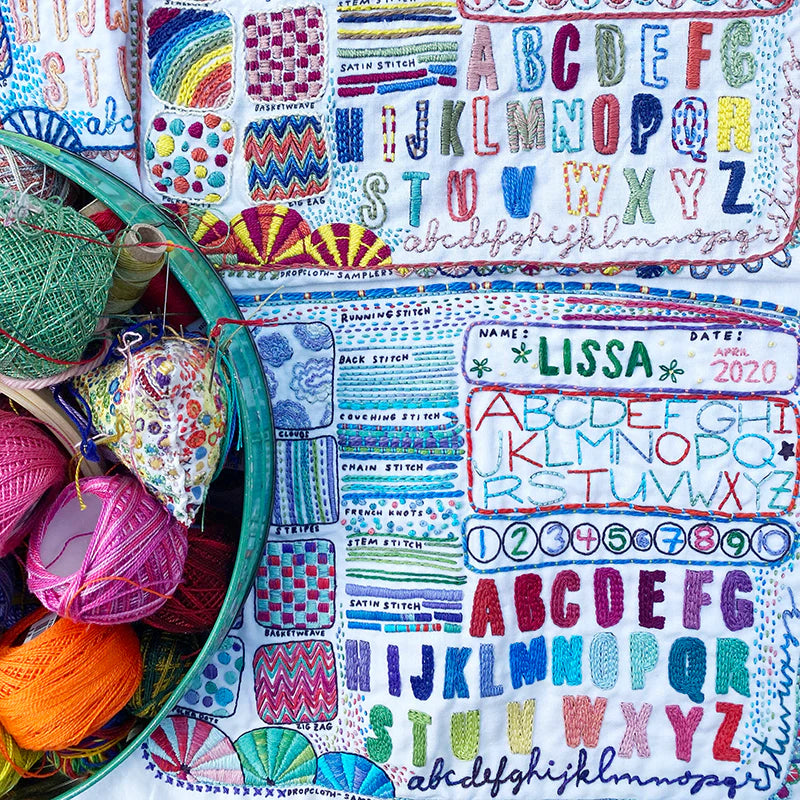 STEM STITCH
SATIN STITCH
ABCDEFG
HIJKLMNOPQR
STUVWXYZ
abcdefghijklmnopqrstuvwxyz
BASKETWEAVE
ZIG ZAG
DROPCLOTH-SAMPLERS
abc
RUNNING STITCH
BACK STITCH
COUCHING STITCH
CHAIN STITCH
FRENCH KNOTS
STEM STITCH
SATIN STITCH
CLOUDS
STRIPES
BASKETWEAVE
ZIG ZAG
NAME: DATE:
LISSA APRIL
2020
ABCDEFGHI
JKLMNOPQ
RSTUVWXYZ
1 2 3 4 5 6 7 8 9 10
ABCDEFG
HIJKLMNOPQR
STUVWXYZ
abcdefghijklmnopqrstuvwxyz
DROPCLOTH SAMPLERS